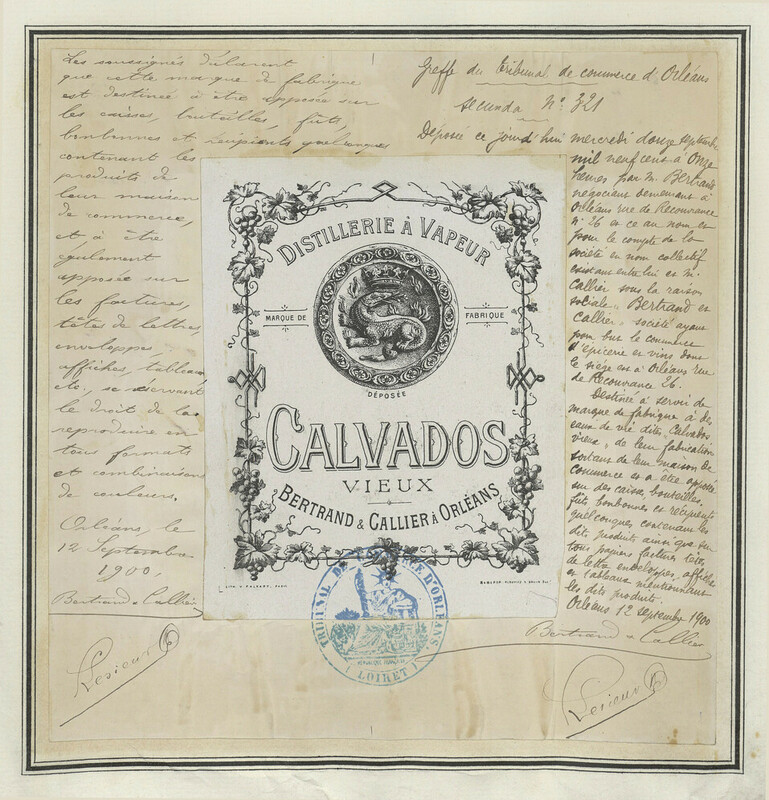 Les soussignés déclarent
que cette marque de fabrique
est destinée à être apposée sur
les caisses, bouteilles, fûts,
bonbonnes et récipients quelconques
contenant les
produits de
leur maison
de commerce,
et, à être
également
apposée sur
les factures,
têtes de lettres,
enveloppes,
affiches, tableaux,
etc., se réservant
le droit de la
reproduire en
tous formats
et combinaisons
de couleurs.
Orléans, le
12 Septembre
1900.
Bertrand & Callier
Lesieur
Greffe du tribunal de commerce d'Orléans
secunda N° 321
Déposée ce jourd'hui mercredi douze septembre
mil neuf cent à Onze
heures par M. Bertrand
négociant demeurant à
Orléans rue de Recouvrance
n° 26 et ce au nom et
pour le compte de la
société en nom collectif
existant entre lui et M.
Callier sous la raison
sociale, Bertrand et
Callier, société ayant
pour but le commerce
d'épicerie et vins dont
le siège est à Orléans rue
de Recouvrance 26.
Destinée à servir de
marque de fabrique à des
eaux de vie dites, Calvados
vieux, de leur fabrication
sortant de leur maison de
commerce et à être apposée
sur des caisses, bouteilles
fûts bonbonnes et récipients
quelconques contenant les
dits produits ainsi que sur
tous papiers factures têtes
de lettre enveloppes, affiches
et tableaux mentionnant
les dits produits.
Orléans 12 septembre 1900
Bertrand & Callier
Lesieur
DISTILLERIE À VAPEUR
MARQUE DE FABRIQUE
DÉPOSÉE
CALVADOS
VIEUX
BERTRAND & CALLIER À ORLÉANS
PARIS
TRIBUNAL DE COMMERCE D'ORLÉANS
RÉPUBLIQUE FRANÇAISE
(LOIRET)